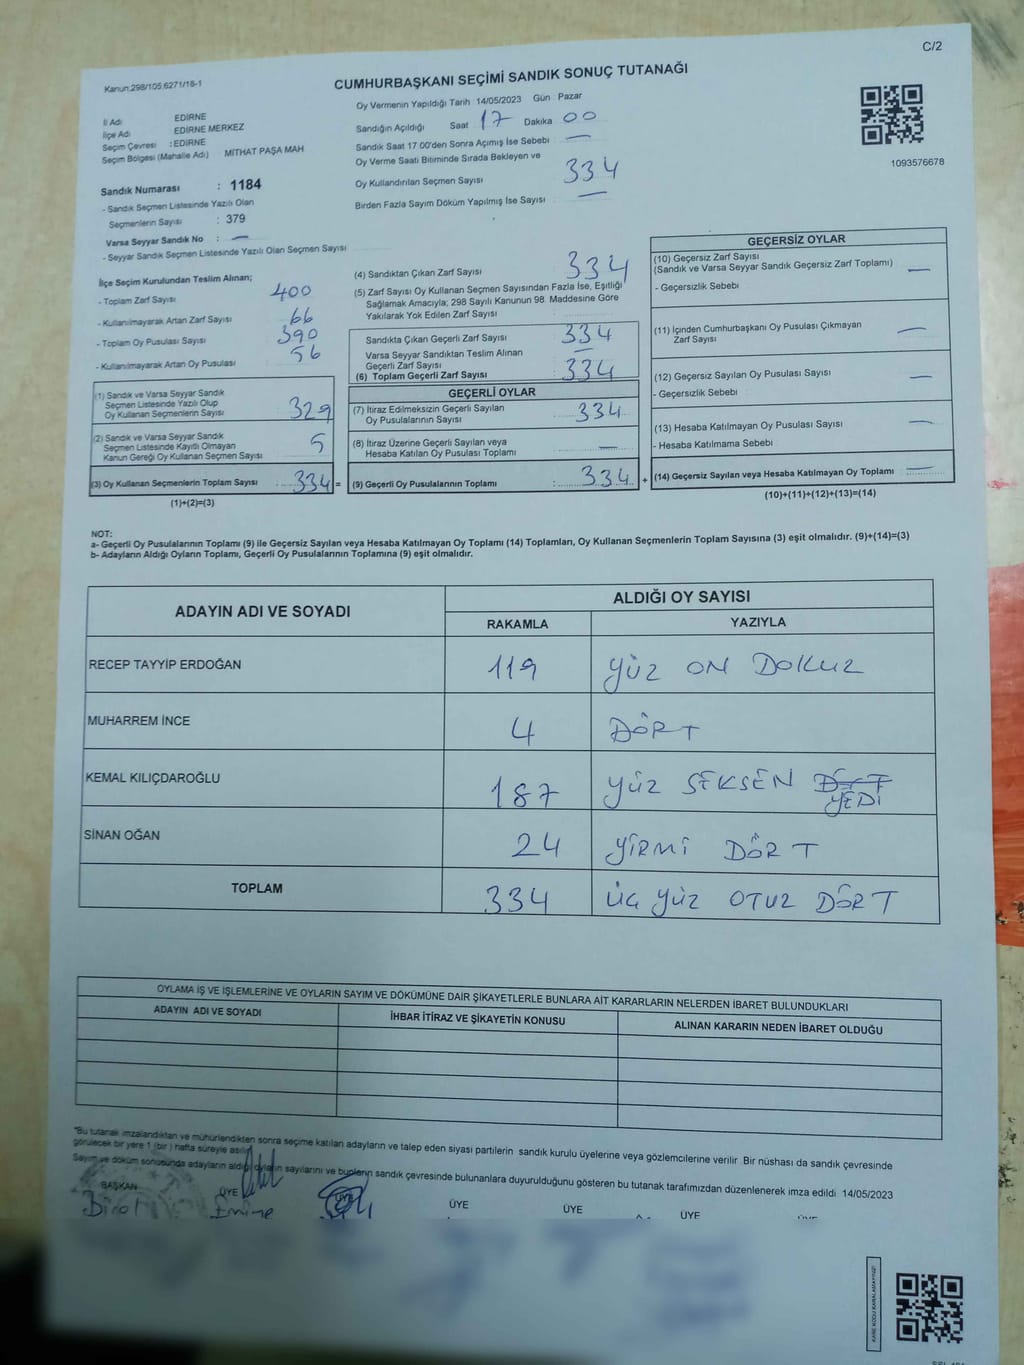 C/2
Kanun:298/105,6271/18-1
CUMHURBAŞKANI SEÇİMİ SANDIK SONUÇ TUTANAĞI
İl Adı EDİRNE
İlçe Adı EDİRNE MERKEZ
Seçim Çevresi : EDİRNE
Seçim Bölgesi (Mahalle Adı) MİTHAT PAŞA MAH
Sandık Numarası : 1184
- Sandık Seçmen Listesinde Yazılı Olan
Seçmenlerin Sayısı : 379
Varsa Seyyar Sandık No : —
- Seyyar Sandık Seçmen Listesinde Yazılı Olan Seçmen Sayısı
Oy Vermenin Yapıldığı Tarih 14/05/2023 Gün Pazar
Sandığın Açıldığı Saat 17 Dakika 00
Sandık Saat 17:00'den Sonra Açımış İse Sebebi —
Oy Verme Saati Bitiminde Sırada Bekleyen ve
Oy Kullandırılan Seçmen Sayısı 334
Birden Fazla Sayım Döküm Yapılmış İse Sayısı —
1093576678
İlçe Seçim Kurulundan Teslim Alınan;
- Toplam Zarf Sayısı 400
- Kullanılmayarak Artan Zarf Sayısı 66
- Toplam Oy Pusulası Sayısı 390
- Kullanılmayarak Artan Oy Pusulası 56
(1) Sandık ve Varsa Seyyar Sandık
Seçmen Listesinde Yazılı Olup
Oy Kullanan Seçmenlerin Sayısı 329
(2) Sandık ve Varsa Seyyar Sandık
Seçmen Listesinde Kayıtlı Olmayan
Kanun Gereği Oy Kullanan Seçmen Sayısı 5
(3) Oy Kullanan Seçmenlerin Toplam Sayısı 334 =
(1)+(2)=(3)
(4) Sandıktan Çıkan Zarf Sayısı 334
(5) Zarf Sayısı Oy Kullanan Seçmen Sayısından Fazla İse, Eşitliği
Sağlamak Amacıyla; 298 Sayılı Kanunun 98. Maddesine Göre
Yakılarak Yok Edilen Zarf Sayısı
Sandıkta Çıkan Geçerli Zarf Sayısı 334
Varsa Seyyar Sandıktan Teslim Alınan
Geçerli Zarf Sayısı —
(6) Toplam Geçerli Zarf Sayısı 334
GEÇERLİ OYLAR
(7) İtiraz Edilmeksizin Geçerli Sayılan
Oy Pusulalarının Sayısı 334
(8) İtiraz Üzerine Geçerli Sayılan veya
Hesaba Katılan Oy Pusulası Toplamı —
(9) Geçerli Oy Pusulalarının Toplamı : 334 +
GEÇERSİZ OYLAR
(10) Geçersiz Zarf Sayısı
(Sandık ve Varsa Seyyar Sandık Geçersiz Zarf Toplamı) —
- Geçersizlik Sebebi
(11) İçinden Cumhurbaşkanı Oy Pusulası Çıkmayan
Zarf Sayısı —
(12) Geçersiz Sayılan Oy Pusulası Sayısı —
- Geçersizlik Sebebi
(13) Hesaba Katılmayan Oy Pusulası Sayısı —
- Hesaba Katılmama Sebebi
(14) Geçersiz Sayılan veya Hesaba Katılmayan Oy Toplamı —
(10)+(11)+(12)+(13)=(14)
NOT:
a- Geçerli Oy Pusulalarının Toplamı (9) ile Geçersiz Sayılan veya Hesaba Katılmayan Oy Toplamı (14) Toplamları, Oy Kullanan Seçmenlerin Toplam Sayısına (3) eşit olmalıdır. (9)+(14)=(3)
b- Adayların Aldığı Oyların Toplamı, Geçerli Oy Pusulalarının Toplamına (9) eşit olmalıdır.
ADAYIN ADI VE SOYADI ALDIĞI OY SAYISI
RAKAMLA YAZIYLA
RECEP TAYYİP ERDOĞAN 119 YÜZ ON DOKUZ
MUHARREM İNCE 4 DÖRT
KEMAL KILIÇDAROĞLU 187 YÜZ SEKSEN
YEDİ
SİNAN OĞAN 24 YİRMİ DÖRT
TOPLAM 334 ÜÇ YÜZ OTUZ DÖRT
OYLAMA İŞ VE İŞLEMLERİNE VE OYLARIN SAYIM VE DÖKÜMÜNE DAİR ŞİKAYETLERLE BUNLARA AİT KARARLARIN NELERDEN İBARET BULUNDUKLARI
ADAYIN ADI VE SOYADI İHBAR İTİRAZ VE ŞİKAYETİN KONUSU ALINAN KARARIN NEDEN İBARET OLDUĞU
"Bu tutanak imzalandıktan ve mühürlendikten sonra seçime katılan adayların ve talep eden siyasi partilerin sandık kurulu üyelerine veya gözlemcilerine verilir. Bir nüshası da sandık çevresinde
görülecek bir yere 1 (bir) hafta süreyle asılır.
Sayım ve döküm sonusunda adayların aldığı oyların sayılarını ve bunların sandık çevresinde bulunanlara duyurulduğunu gösteren bu tutanak tarafımızdan düzenlenerek imza edildi 14/05/2023
BAŞKAN ÜYE ÜYE ÜYE ÜYE ÜYE ÜYE
Birol Emine
KARE KODU KARALAMAYINIZ!